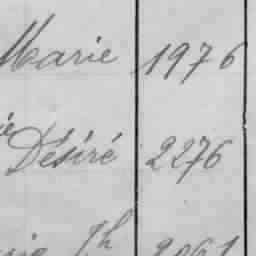 Marie 1976
Désiré 2276